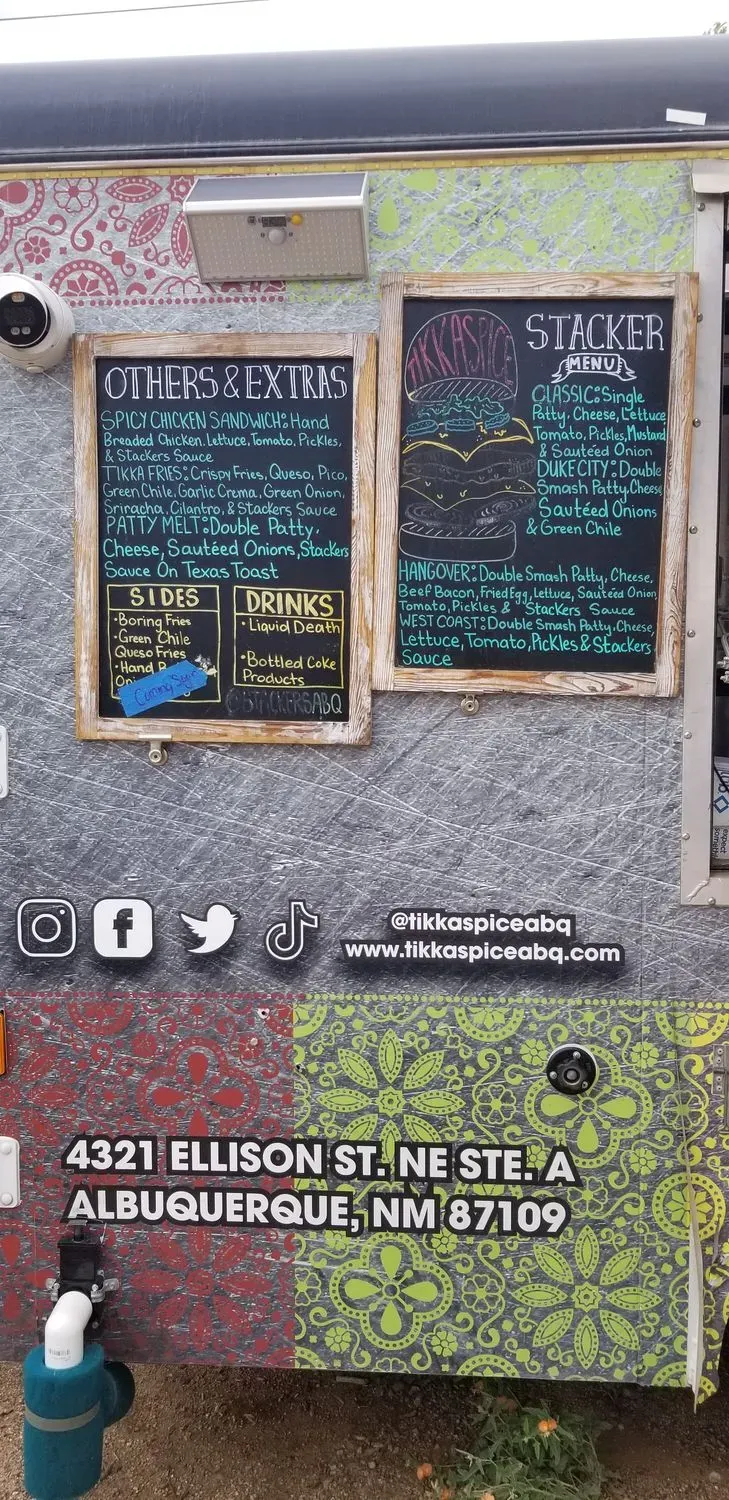 OTHERS & EXTRAS
SPICY CHICKEN SANDWICH: Hand
Breaded Chicken, Lettuce, Tomato, Pickles,
& Stackers Sauce
TIKKA FRIES: Crispy Fries, Queso, Pico,
Green Chile, Garlic Crema, Green Onion,
Sriracha, Cilantro, & Stackers Sauce
PATTY MELT: Double Patty,
Cheese, Sautéed Onions, Stackers
Sauce On Texas Toast
SIDES
• Boring Fries
• Green Chile
Queso Fries
• Hand
Coming Soon
DRINKS
• Liquid Death
• Bottled Coke
Products
@STACKERSABQ
TIKKASPICE
STACKER
MENU
CLASSIC: Single
Patty, Cheese, Lettuce
Tomato, Pickles, Mustard
& Sautéed Onion
DUKE CITY: Double
Smash Patty, Cheese
Sautéed Onions
& Green Chile
HANGOVER: Double Smash Patty, Cheese,
Beef Bacon, Fried Egg, Lettuce, Sautéed Onion,
Tomato, Pickles & Stackers Sauce
WEST COAST: Double Smash Patty, Cheese,
Lettuce, Tomato, Pickles & Stackers
Sauce
expect
@tikkaspiceabq
www.tikkaspiceabq.com
4321 ELLISON ST. NE STE. A
ALBUQUERQUE, NM 87109